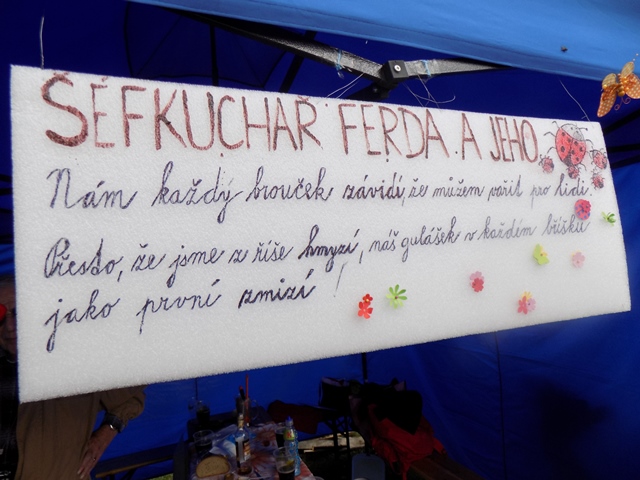 ŠÉFKUCHAŘ FERDA A JEHO
Nám každý brouček závidí, že můžem vařit pro lidi.
Přesto, že jsme z říše hmyzí, náš gulášek v každém bříšku
jako první zmizí!